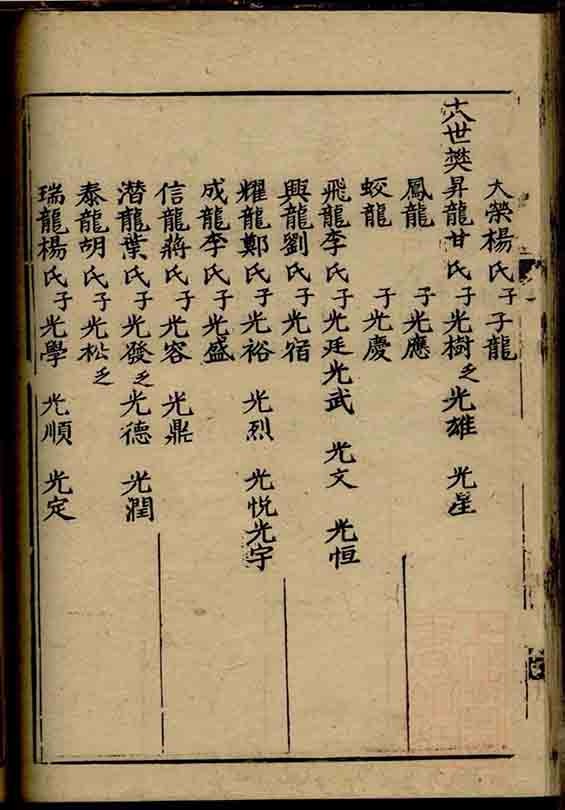 大榮楊氏子子龍
十八世樊昇龍甘氏子光樹乏光雄 光星
鳳龍 子光應
蛟龍 子光慶
飛龍李氏子光廷光武 光文 光恒
興龍劉氏子光宿
耀龍鄭氏子光裕 光烈 光悦光宇
成龍李氏子光盛
信龍蔣氏子光容 光鼎
潛龍葉氏子光發乏光德 光潤
泰龍胡氏子光松乏
瑞龍楊氏子光學 光順 光定